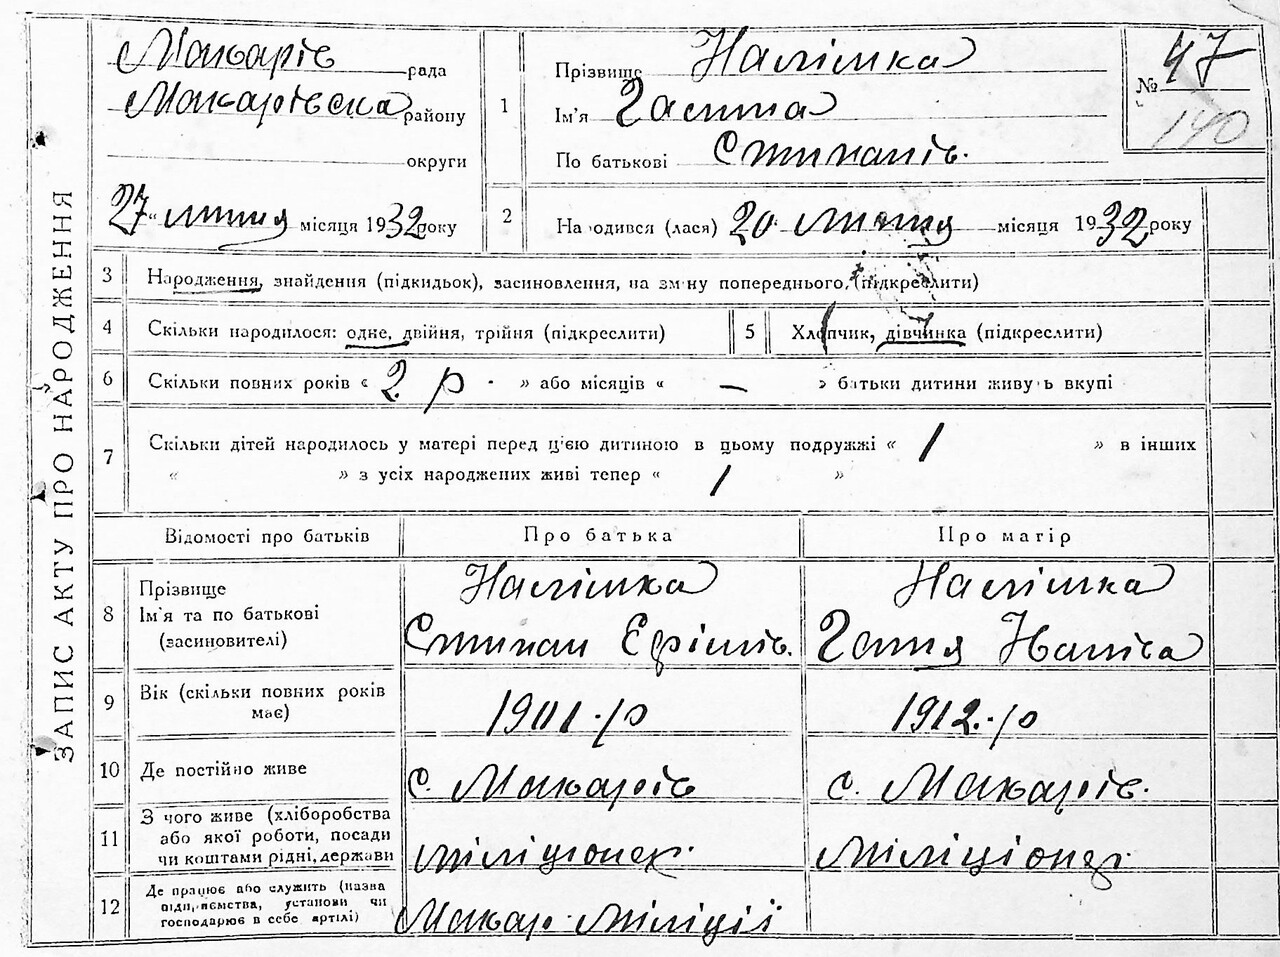 ЗАПИС АКТУ ПРО НАРОДЖЕННЯ
Макарів рада
Макарівска району
округи
27 " липня місяця 1932 року
1 Прізвище Налімка
Ім'я Галина
По батькові Стипанів.
№ 47
140
2 Народився (лася) 20 липня місяця 1932 року
3 Народження, знайдення (підкидьок), засиновлення, на зміну попереднього, (підкреслити)
4 Скільки народилося: одне, двійня, трійня (підкреслити) 5 Хлопчик, дівчинка (підкреслити)
6 Скільки повних років « 2 р. » або місяців « — » батьки дитини живуть вкупі
7 Скільки дітей народилось у матері перед ц'єю дитиною в цьому подружжі « 1 » в інших
« » з усіх народжених живі тепер « 1 »
Відомості про батьків Про батька Про матір
8 Прізвище Налімка Налімка
Ім'я та по батькові Стипан Ефімів. Ганя Іванівa
(засиновителі)
9 Вік (скільки повних років має) 1901.р 1912.р
10 Де постійно живе с. Макарів с. Макарів.
11 З чого живе (хліборобства
або якої роботи, посади
чи коштами рідні, держави міліціонер.
12 Де працює або служить (назва
підприємства, установи чи
господарює в себе артілі) Макар. міліції